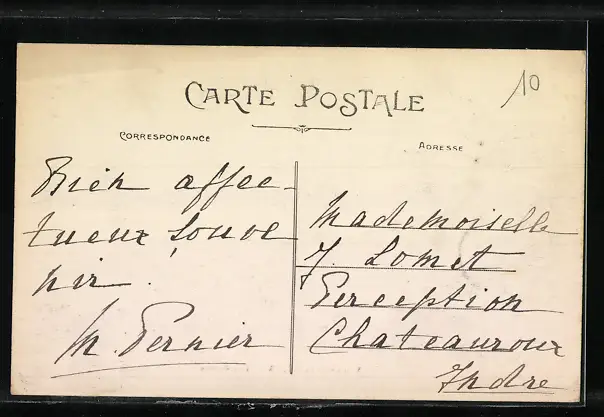 10
CARTE POSTALE
CORRESPONDANCE
ADRESSE
Bien affec-
tueux souve
nir.
M. Pernier
Mademoiselle
J. Lomet
Perception
Chateauroux
Indre